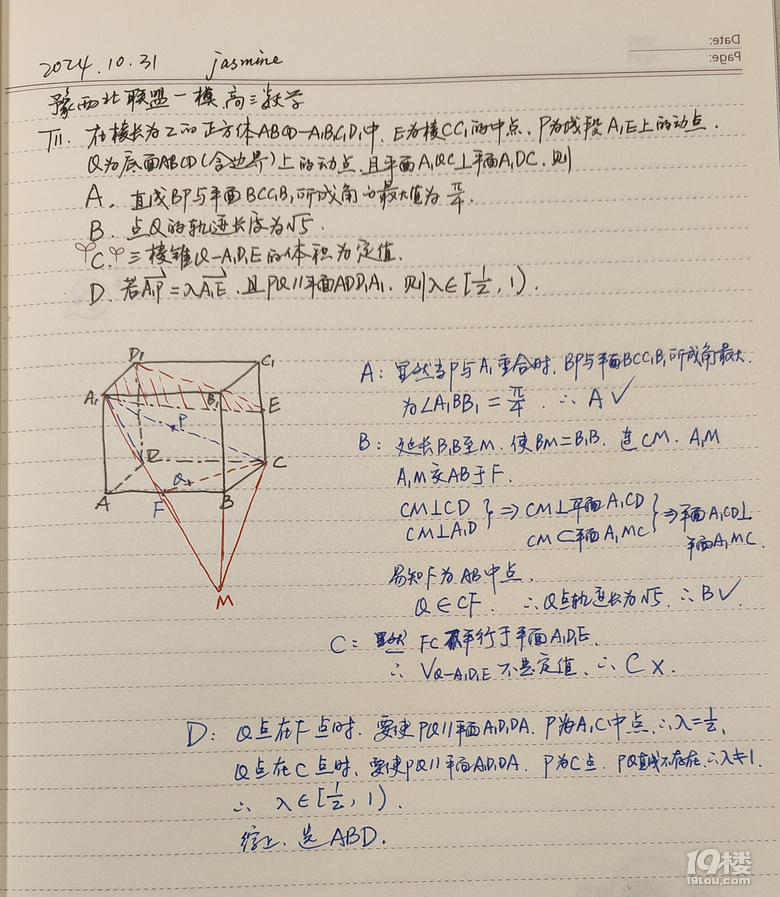 Date:
Page:
2024.10.31 jasmine
豫西北联盟一模高三数学
T11. 在棱长为2的正方体ABCD-A₁B₁C₁D₁中，E为棱CC₁的中点，P为线段A₁E上的动点，
Q为底面ABCD(含边界)上的动点，且平面A₁QC⊥平面A₁DC，则
A. 直线BP与平面BCC₁B₁所成角的最大值为π/4.
B. 点Q的轨迹长度为√5.
C. 三棱锥Q-A₁D₁E的体积为定值.
D. 若A₁P=λA₁E，且PQ∥平面ADD₁A₁，则λ∈[1/2, 1).
D₁ C₁
A₁ B₁ E
P
D C
Q
A F B
M
A: 显然当P与A₁重合时，BP与平面BCC₁B₁所成角最大.
为∠A₁BB₁=π/4. ∴A✓
B: 延长B₁B至M，使BM=B₁B. 连CM、A₁M
A₁M交AB于F.
CM⊥CD
CM⊥A₁D } ⇒ CM⊥平面A₁CD
CM⊂平面A₁MC } ⇒ 平面A₁CD⊥
平面A₁MC.
易知F为AB中点.
Q∈CF. ∴Q点轨迹长为√5. ∴B✓
C: 显然 FC不平行于平面A₁D₁E.
∴V Q-A₁D₁E 不是定值. ∴C×.
D: Q点在F点时，要使PQ∥平面A₁D₁DA. P为A₁C中点，∴λ=1/2,
Q点在C点时，要使PQ∥平面A₁D₁DA. P为C点，PQ直线不存在，∴λ≠1.
∴λ∈[1/2, 1).
综上，选ABD.
19楼
19lou.com